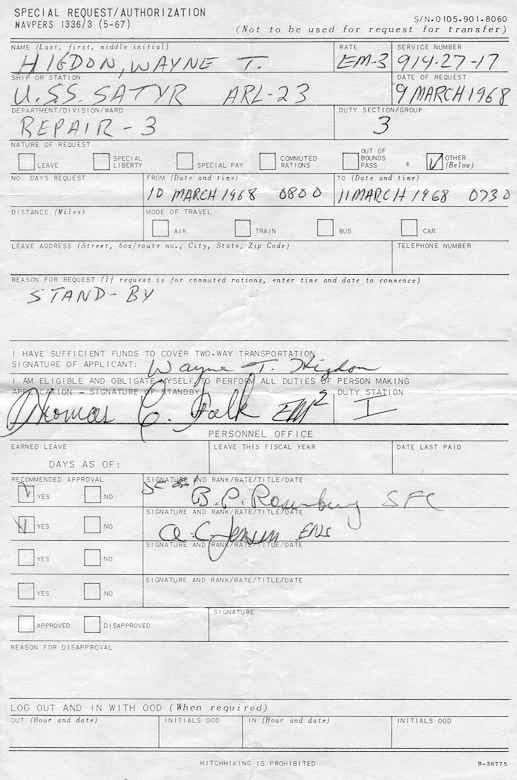 SPECIAL REQUEST/AUTHORIZATION
NAVPERS 1336/3 (5-67)
S/N-0105-901-8060
(Not to be used for request for transfer)
NAME (Last, first, middle initial) RATE SERVICE NUMBER
HIGDON, WAYNE T. EM-3 914-27-17
SHIP OR STATION DATE OF REQUEST
U.S.S. SATYR ARL-23 9 MARCH 1968
DEPARTMENT/DIVISION/WARD DUTY SECTION/GROUP
REPAIR-3 3
NATURE OF REQUEST
LEAVE SPECIAL LIBERTY SPECIAL PAY COMMUTED RATIONS OUT OF BOUNDS PASS OTHER (Below)
NO. DAYS REQUEST FROM (Date and time) TO (Date and time)
10 MARCH 1968 0800 11 MARCH 1968 0730
DISTANCE (Miles) MODE OF TRAVEL
AIR TRAIN BUS CAR
LEAVE ADDRESS (Street, box/route no., City, State, Zip Code) TELEPHONE NUMBER
REASON FOR REQUEST (If request is for commuted rations, enter time and date to commence)
STAND-BY
I HAVE SUFFICIENT FUNDS TO COVER TWO-WAY TRANSPORTATION
SIGNATURE OF APPLICANT: Wayne T. Higdon
I AM ELIGIBLE AND OBLIGATE MYSELF TO PERFORM ALL DUTIES OF PERSON MAKING
APPLICATION - SIGNATURE OF STANDBY DUTY STATION
Thomas C. Falk EM2 I
PERSONNEL OFFICE
EARNED LEAVE LEAVE THIS FISCAL YEAR DATE LAST PAID
DAYS AS OF:
RECOMMENDED APPROVAL SIGNATURE AND RANK/RATE/TITLE/DATE
YES NO B.P. Rosenburg SFC
SIGNATURE AND RANK/RATE/TITLE/DATE
YES NO A. C. Jensen ENS
SIGNATURE AND RANK/RATE/TITLE/DATE
YES NO
SIGNATURE AND RANK/RATE/TITLE/DATE
YES NO
SIGNATURE
APPROVED DISAPPROVED
REASON FOR DISAPPROVAL
LOG OUT AND IN WITH OOD (When required)
OUT (Hour and date) INITIALS OOD IN (Hour and date) INITIALS OOD
HITCHHIKING IS PROHIBITED
B-36775